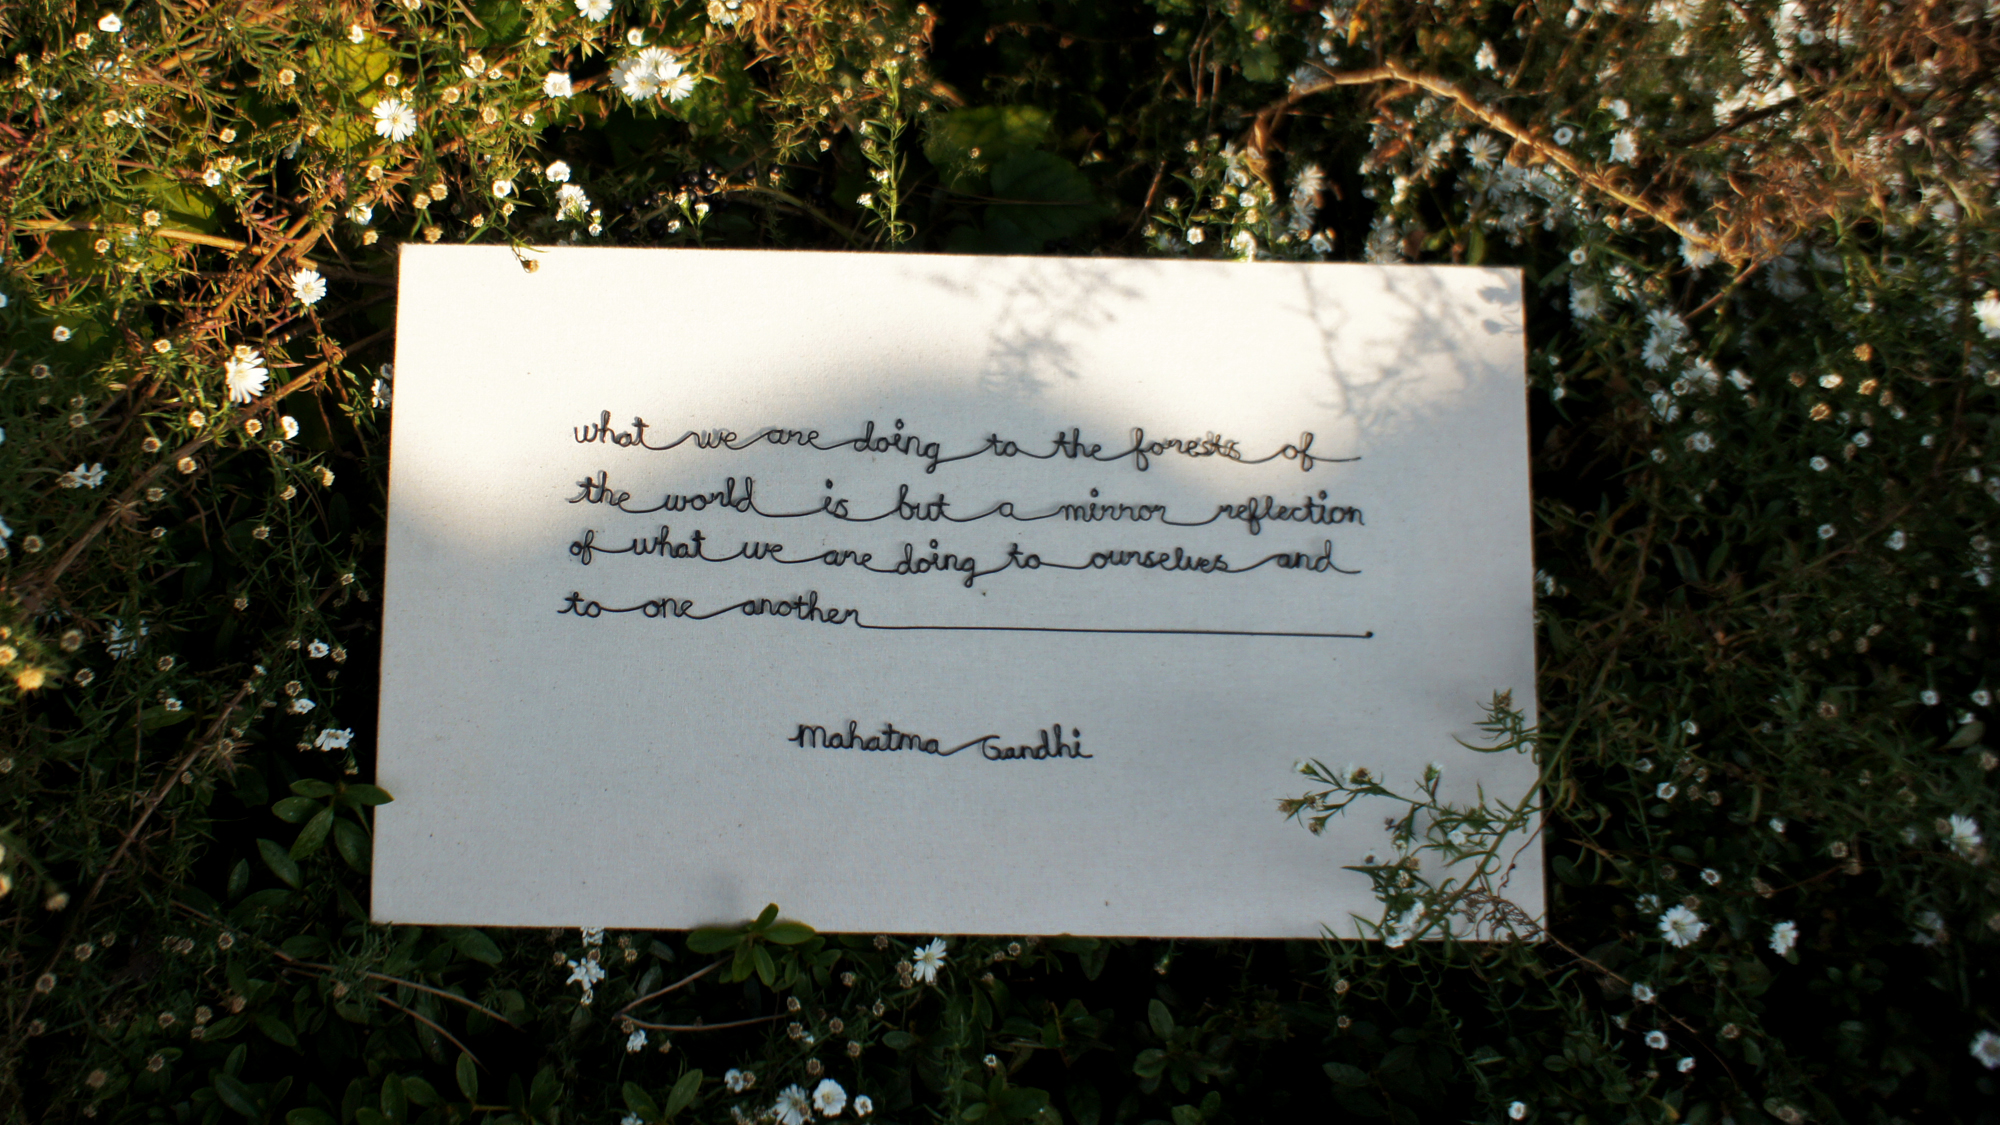 what we are doing to the forests of
the world is but a mirror reflection
of what we are doing to ourselves and
to one another
Mahatma Gandhi